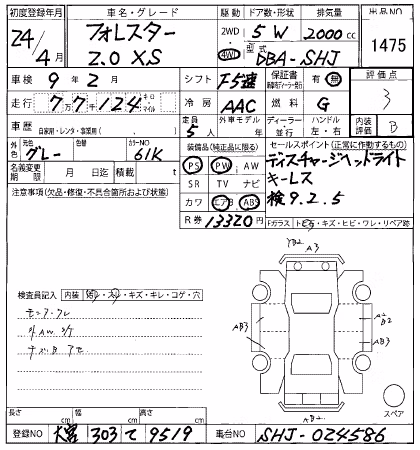 初度登録年月 車名・グレード 駆動 ドア数・形状 排気量 出品NO
24/4月 フォレスター 2.0 XS 2WD 4WD 5 W 2000 cc 1475
型式 DBA-SHJ
車検 9年2月 シフト F5速 保証書 有 無 評価点 3
走行 77,124 キロ・マイル 冷房 AAC 燃料 G
車歴 自家用・レンタ・事業用 定員 5人 外車モデル 年 ディーラー 並行 ハンドル 左・右 内装評価 B
外色 元色 グレー 色替 カラーNO 61K
装備品(純正品に限る) セールスポイント(正常に作動するもの)
名義変更期限 月 日迄 積載 t
PS PW AW ディスチャージヘッドライト
注意事項(欠品・修復・不具合箇所および状態)
SR TV ナビ キーレス
カワ エアB ABS 検9.2.5
R券 13320円 Fガラス トビ石・キズ・ヒビ・ワレ・リペア跡
YB2 A3
検査員記入 内装 ・キズ・キレ・コゲ・穴
AB3
A2 B2
AB3
AB2
スペア
長さ cm 幅 cm 高さ cm
登録NO 大宮 303 て 9519 車台NO SHJ-024586